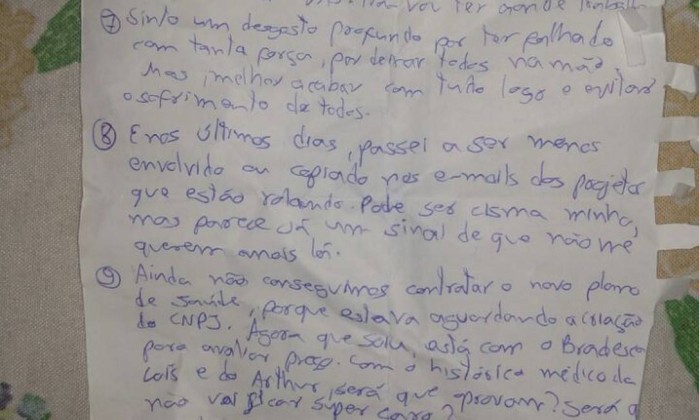 vou ter onde
⑦ Sinto um desgosto profundo por ter falhado
com tanta força, por deixar todos na mão.
Mas, melhor acabar com tudo logo e evitar
o sofrimento de todos.
⑧ E nos últimos dias, passei a ser menos
envolvido ou copiado nos e-mails dos projetos
que estão rolando. Pode ser cisma minha,
mas parece já um sinal de que não me
querem mais lá.
⑨ Ainda não conseguimos contratar o novo plano
de saúde, porque estava aguardando a criação
do CNPJ. Agora que saiu, está com o Bradesco
para avaliar preço. Com o histórico médico da
Laís e do Arthur, será que aprovam? Será q
não vai ficar super caro?